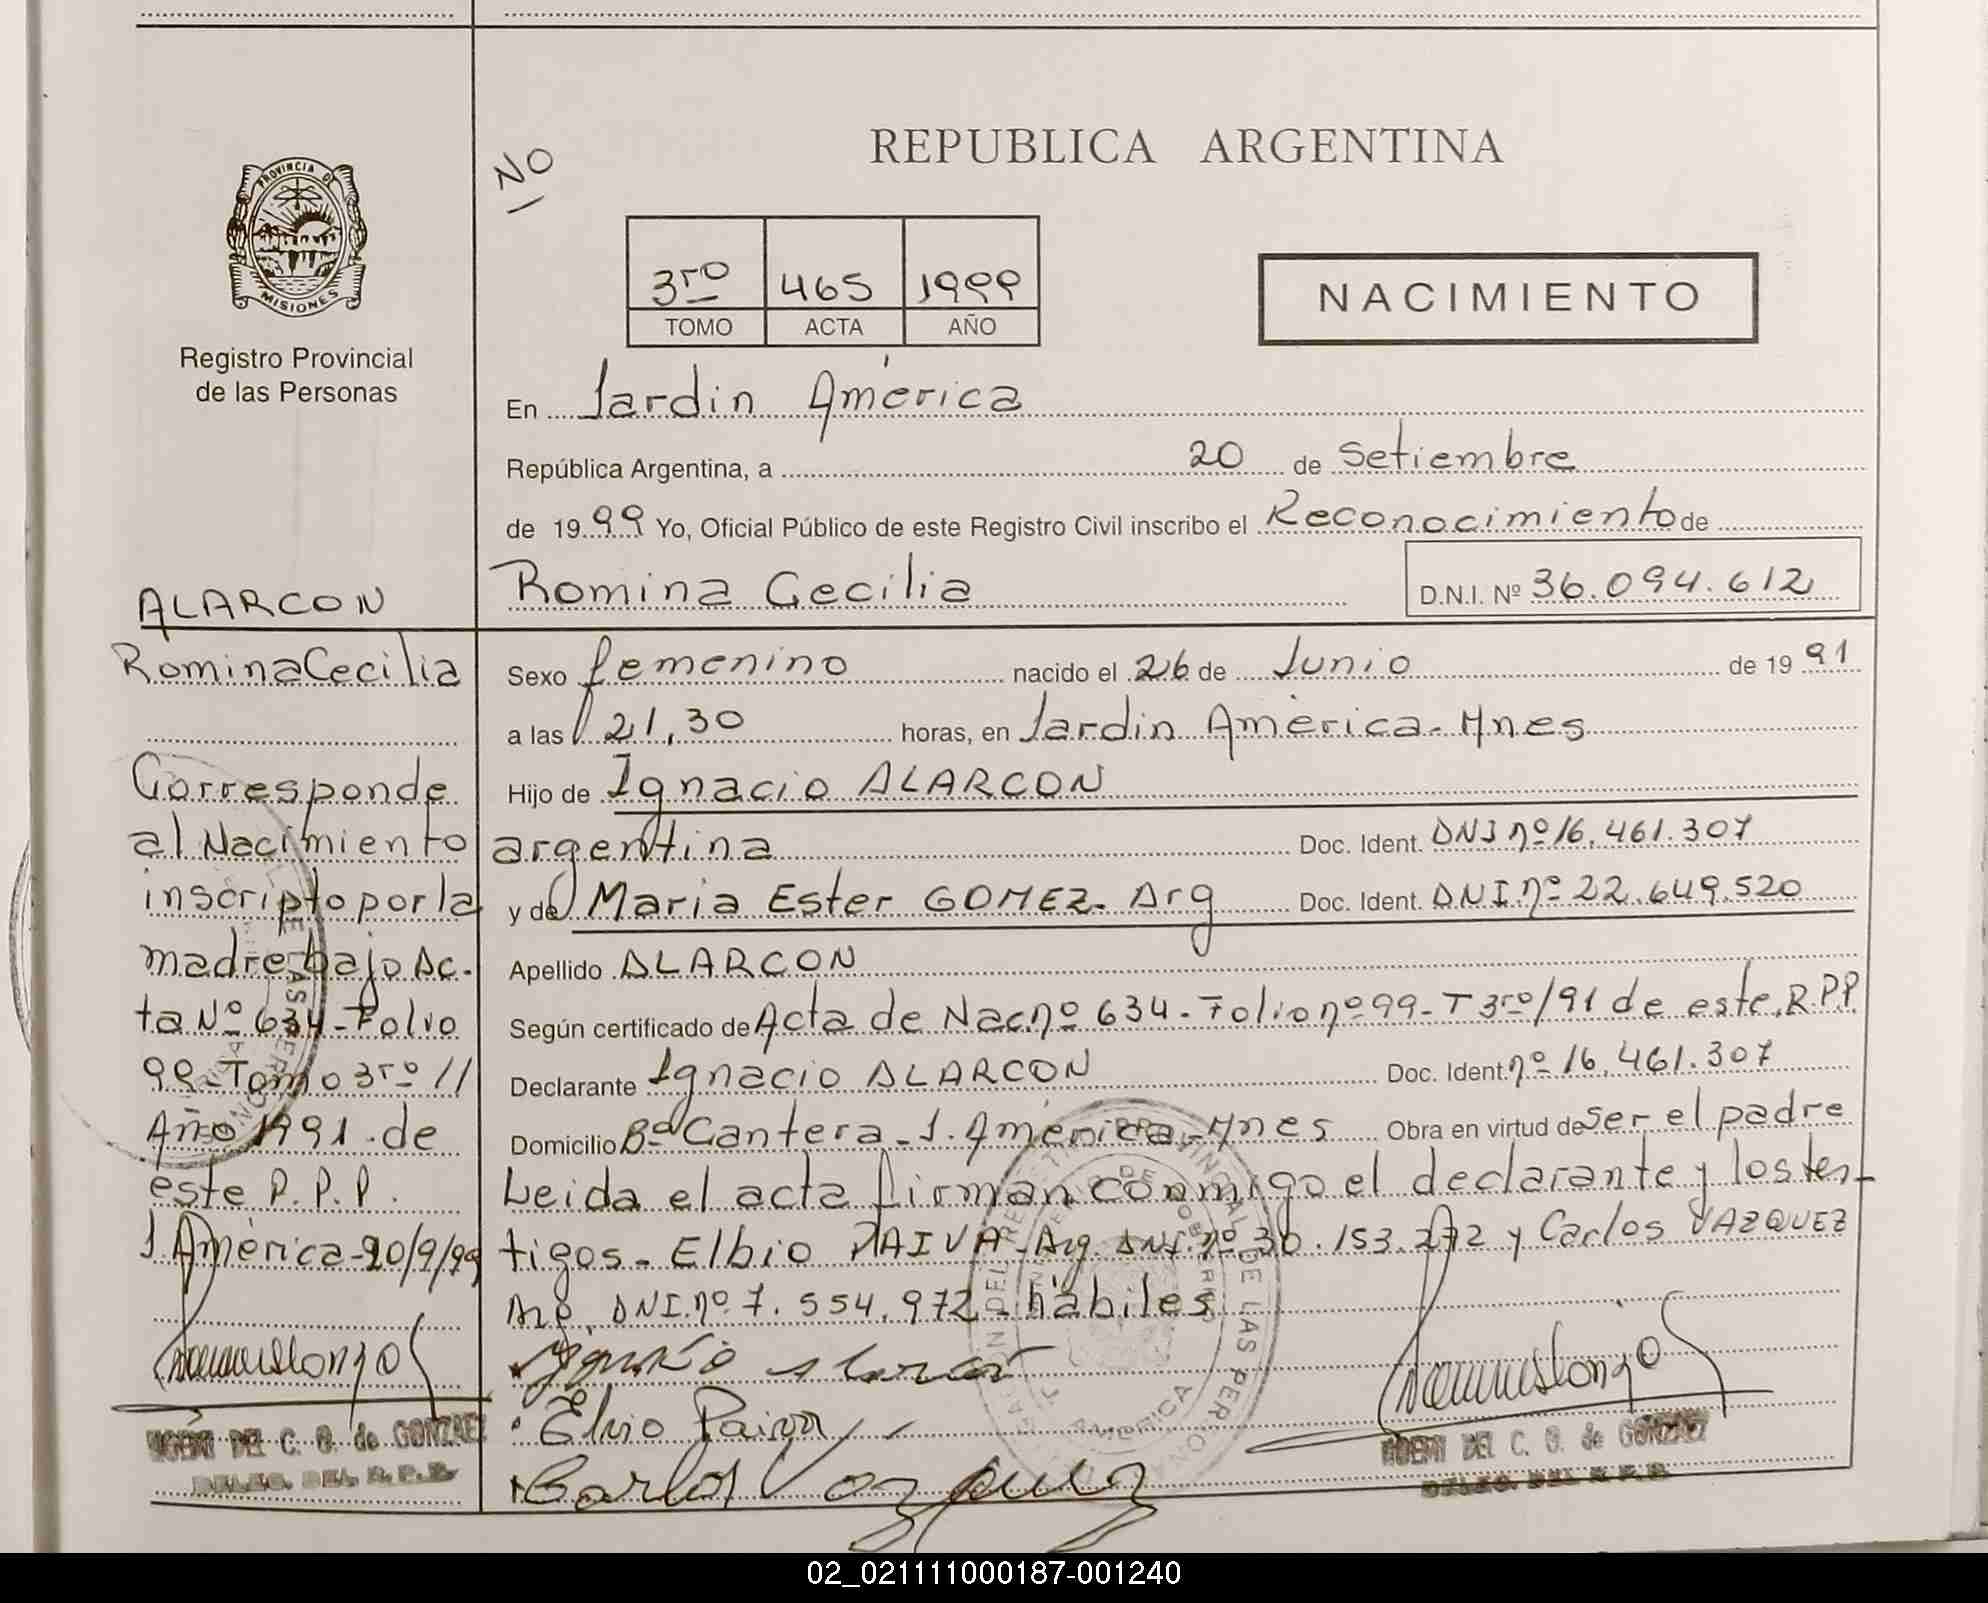 REPUBLICA ARGENTINA
NO
PROVINCIA DE
MISIONES
Registro Provincial
de las Personas
3ro 465 1999
TOMO ACTA AÑO
NACIMIENTO
En Jardin América
República Argentina, a 20 de Setiembre
de 1999 Yo, Oficial Público de este Registro Civil inscribo el Reconocimiento de
Romina Cecilia D.N.I. Nº 36.094.612
Sexo femenino nacido el 26 de Junio de 1991
a las 21,30 horas, en Jardin América - Mnes
Hijo de Ignacio ALARCON
argentina Doc. Ident. DNI nº 16.461.307
y de Maria Ester GOMEZ - Arg Doc. Ident. DNI. nº 22.649.520
Apellido ALARCON
Según certificado de Acta de Nac. nº 634 - Folio nº 99 - T 3ro/91 de este R.P.P.
Declarante Ignacio ALARCON Doc. Ident. nº 16.461.307
Domicilio Bº Cantera - J. América - Mnes Obra en virtud de ser el padre
Leida el acta firman conmigo el declarante y los tes-
tigos - Elbio PAIVA - Arg. DNI. nº 30.153.272 y Carlos VAZQUEZ
Arg. DNI. nº 7.554.972 - hábiles
Elvio Paiva
Carlos Vazquez
NOEMI DEL C. O. de GONZALEZ
DELEG. DEL R.P.P.
ALARCON
Romina Cecilia
Corresponde
al Nacimiento
inscripto por la
madre bajo Ac-
ta Nº 634 - Folio
99 - Tomo 3ro //
Año 1991 de
este R.P.P.
J. América - 20/9/99
NOEMI DEL C. O. de GONZALEZ
DELEG. DEL R.P.P.
02_021111000187-001240